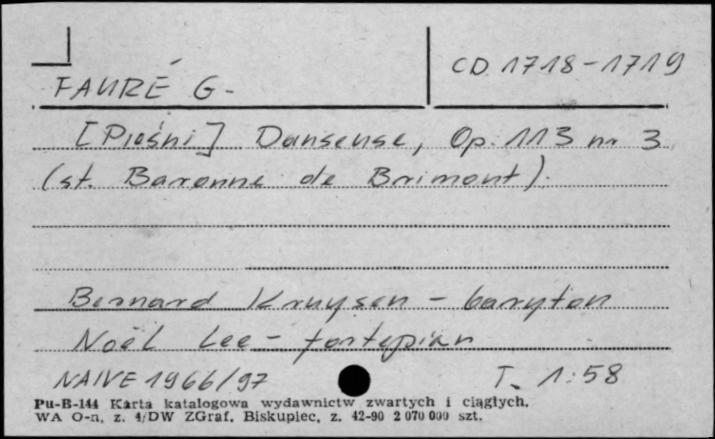 FAURÉ G. CD 1718-1719
[Pieśni] Danseuse, Op. 113 nr 3
(st. Baronne de Brimont).
Bernard Kruysen - baryton
Noël Lee - fortepian
NAIVE 1966/97 T. 1:58
Pu-B-144 Karta katalogowa wydawnictw zwartych i ciągłych.
WA O-n, z. 4/DW ZGraf. Biskupiec, z. 42-90 2 070 000 szt.